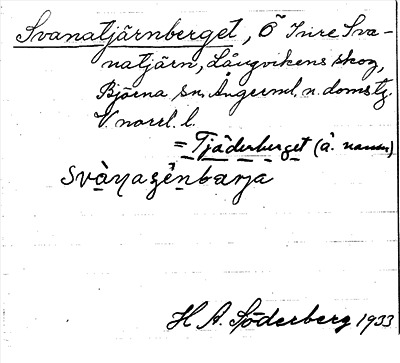 Svanatjärnberget, Ö Inre Sva-
natjärn, Långvikens skog,
Björna sn. Ångerml. n. domstg.
V. norrl. l.
= Tjäderberget (ä. namn)
H A. Söderberg 1933